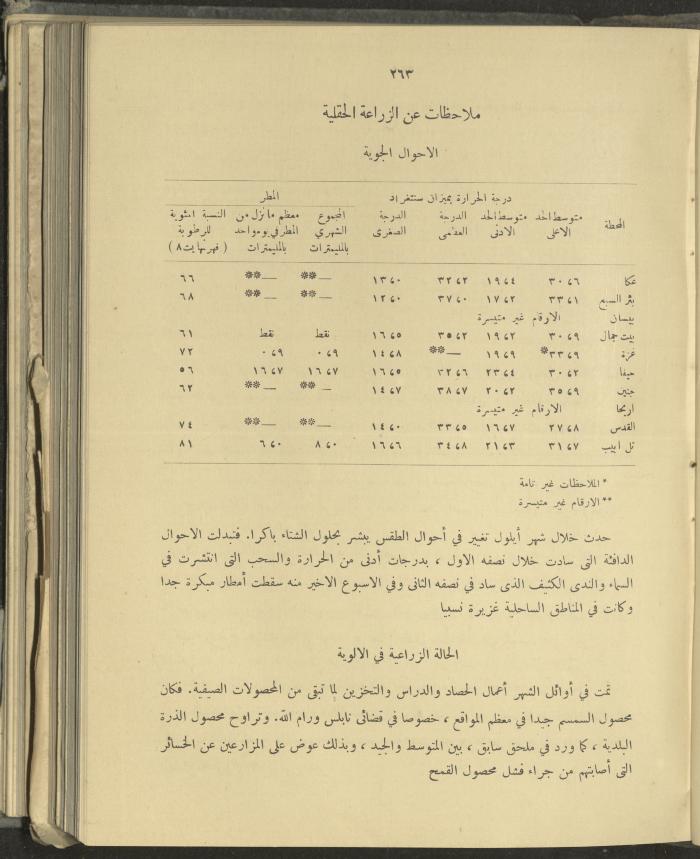 ٢٦٣
ملاحظات عن الزراعة الحقلية
الاحوال الجوية
درجة الحرارة بميزان سنتغراد المطر
المحطة متوسط الحد الاعلى متوسط الحد الادنى الدرجة العظمى الدرجة الصغرى المجموع الشهري بالمليمترات معظم ما نزل من المطر في يوم واحد بالمليمترات النسبة المئوية للرطوبة (فهرنهايت ٨)
عكا ٣٠،٦ ١٩،٤ ٣٢،٢ ١٣،٠ —** —** ٦٦
بئر السبع ٣٣،١ ١٧،٢ ٣٧،٠ ١٢،٠ —** —** ٦٨
بيسان الارقام غير متيسرة
بيت جمال ٣٠،٩ ١٩،٢ ٣٥،٢ ١٦،٥ نقط نقط ٦١
غزة ٣٣،٩* ١٩،٩ —** ١٤،٨ ٠،٩ ٠،٩ ٧٢
حيفا ٣٠،٢ ٢٣،٤ ٣٢،٦ ١٦،٥ ١٦،٧ ١٦،٧ ٥٦
جنين ٣٥،٩ ٢٠،٢ ٣٨،٧ ١٤،٧ —** —** ٦٢
اريحا الارقام غير متيسرة
القدس ٢٧،٨ ١٦،٧ ٣٣،٥ ١٤،٠ —** —** ٧٤
تل ابيب ٣١،٧ ٢١،٣ ٣٤،٨ ١٦،٦ ٨،٠ ٦،٠ ٨١
* الملاحظات غير تامة
** الارقام غير متيسرة
حدث خلال شهر أيلول تغيير في أحوال الطقس يبشر بحلول الشتاء باكرا. فتبدلت الاحوال
الدافئة التى سادت خلال نصفه الاول ، بدرجات أدنى من الحرارة والسحب التى انتشرت في
السماء والندى الكثيف الذى ساد في نصفه الثانى وفي الاسبوع الاخير منه سقطت أمطار مبكرة جدا
وكانت في المناطق الساحلية غزيرة نسبيا
الحالة الزراعية في الالوية
تمت في أوائل الشهر أعمال الحصاد والدراس والتخزين لما تبقى من المحصولات الصيفية. فكان
محصول السمسم جيدا في معظم المواقع ، خصوصا في قضائى نابلس ورام الله. وتراوح محصول الذرة
البلدية ، كما ورد في ملحق سابق ، بين المتوسط والجيد ، وبذلك عوض على المزارعين عن الخسائر
التى أصابتهم من جراء فشل محصول القمح